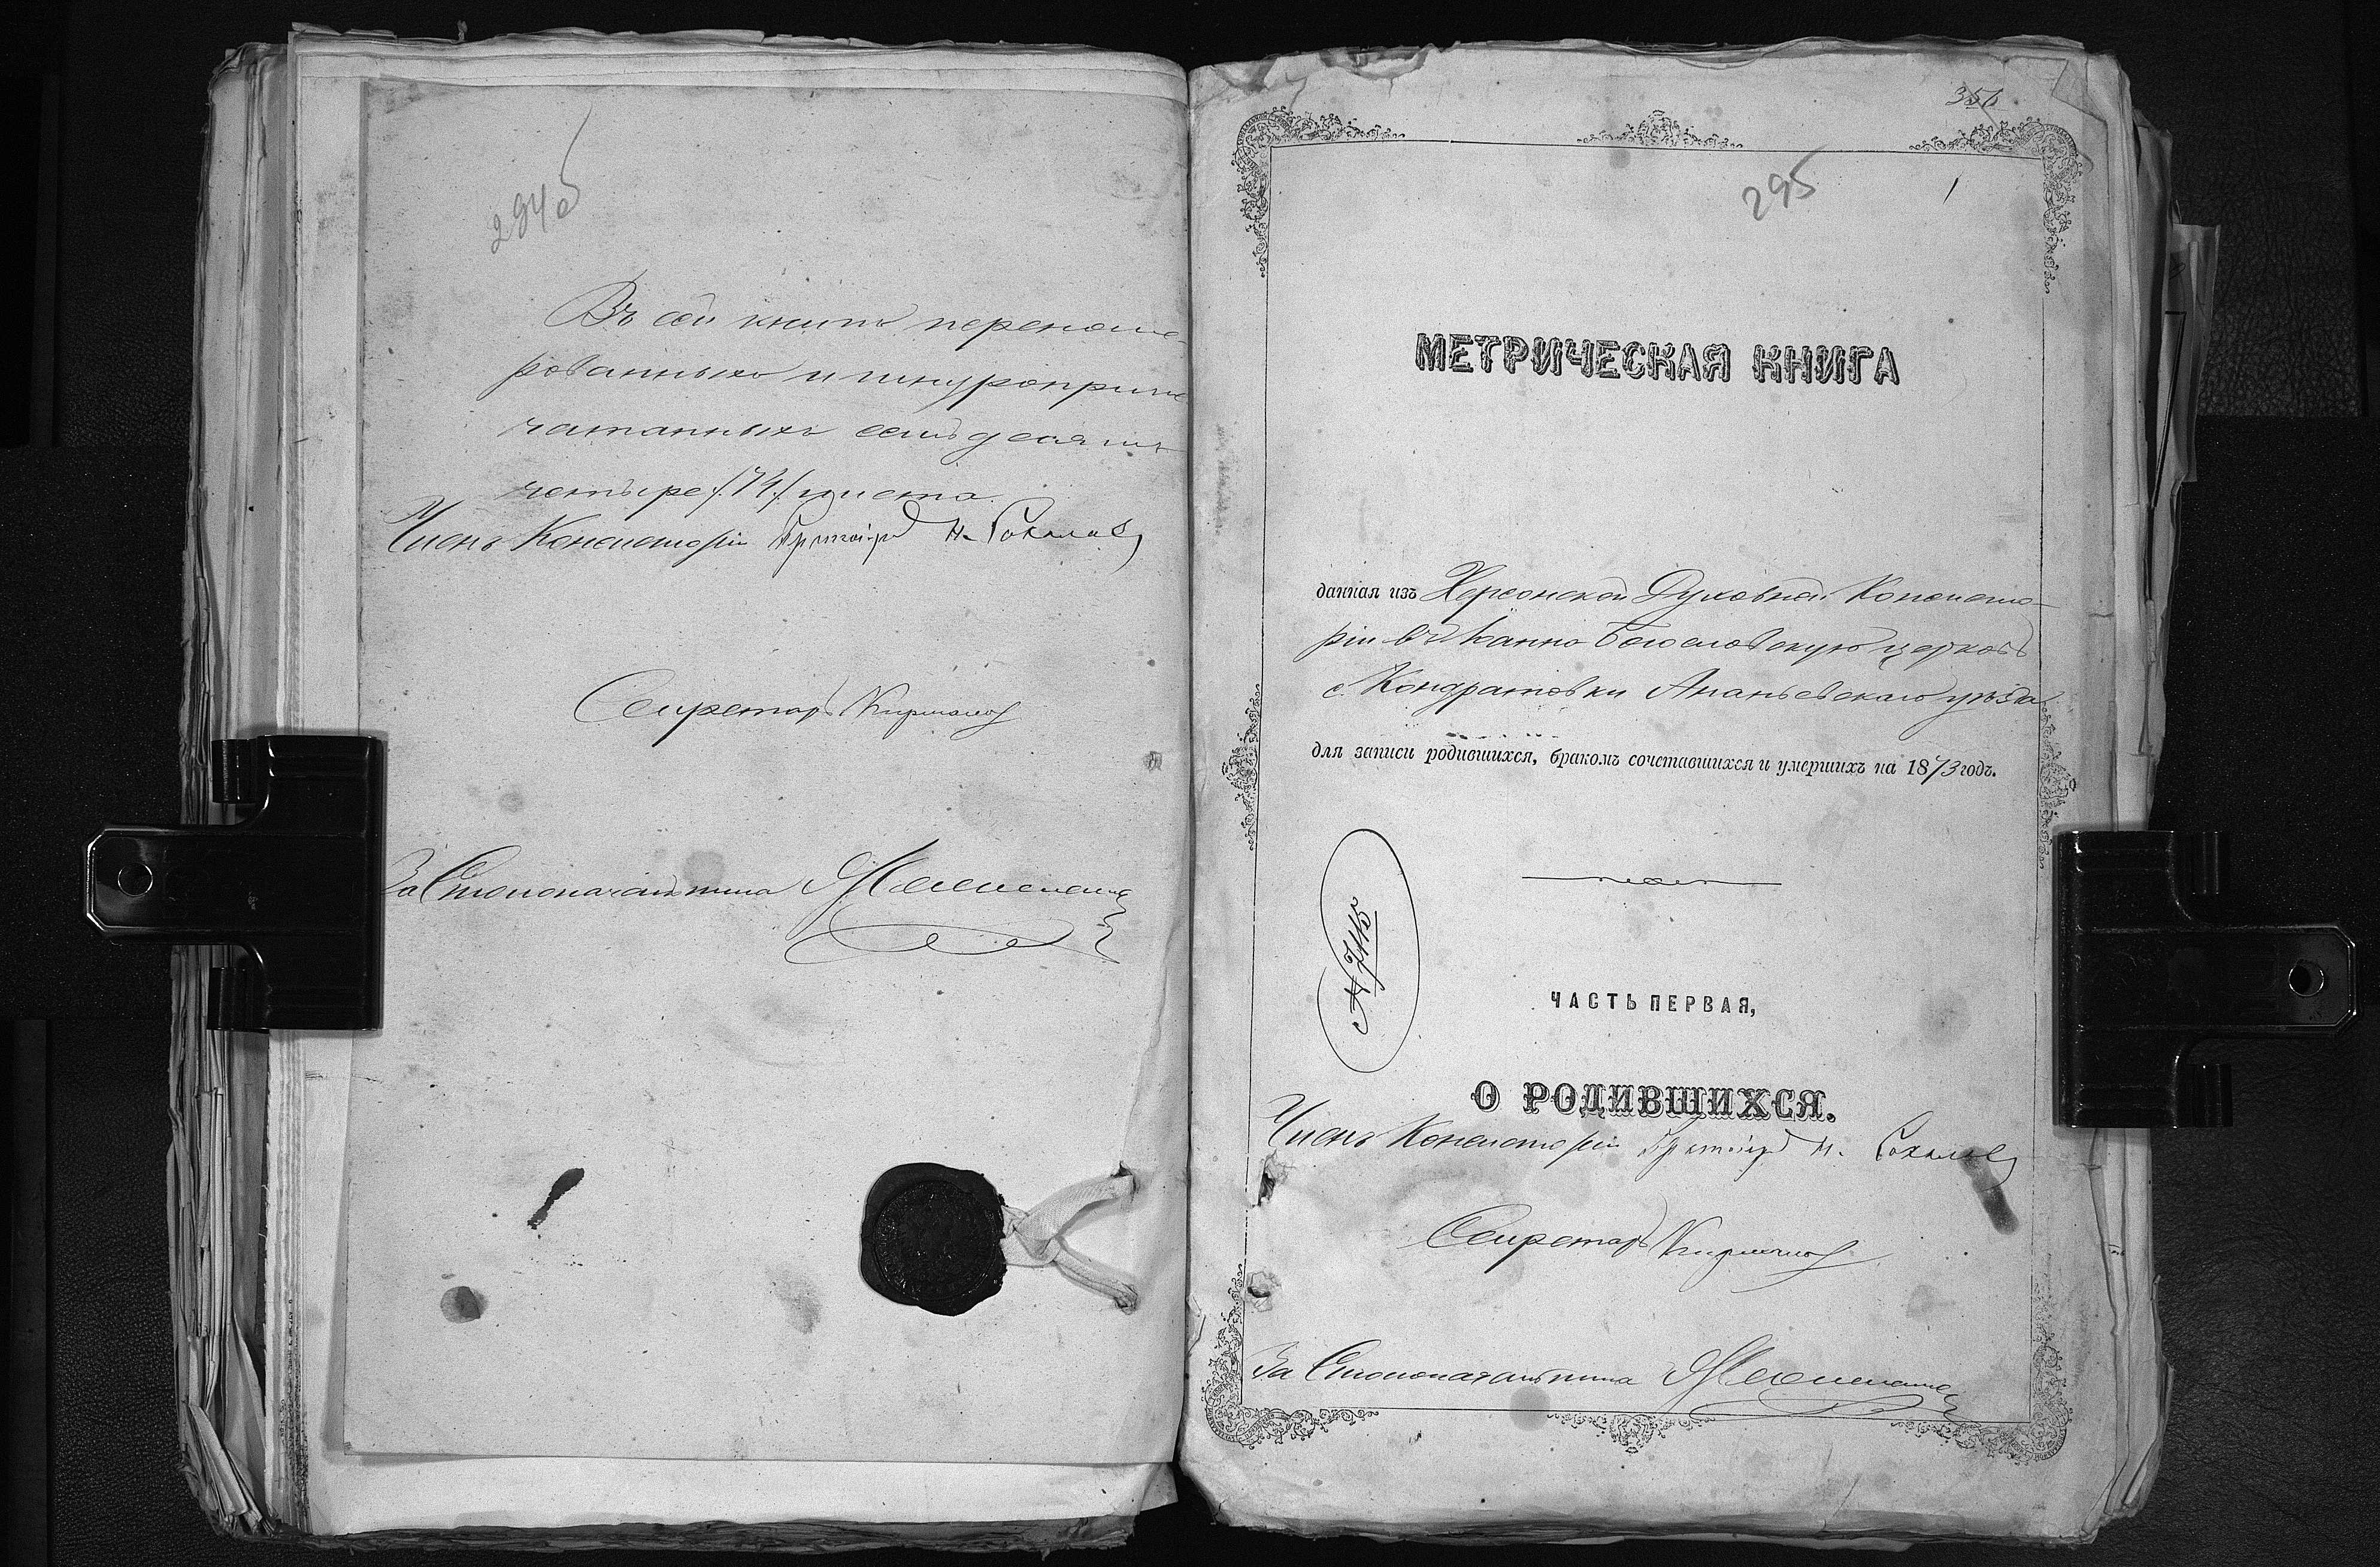 294об
Въ сей книгѣ перенуме-
рованныхъ и шнуроприпе
чатанныхъ семьдесятъ
четыре /74/ листа.
Членъ Консисторіи Протоіерей Н. Соколовъ
Секретарь
За Столоначальника
356
295
1
МЕТРИЧЕСКАЯ КНИГА
данная изъ Херсонской Духовной Консисто-
ріи въ Іоанно Богословскую церковь
с. Кондратовки Ананьевскаго уѣзда
для записи родившихся, бракомъ сочетавшихся и умершихъ на 1873 годъ.
№ 7115
ЧАСТЬ ПЕРВАЯ,
О РОДИВШИХСЯ.
Членъ Консисторіи Протоіерей Н. Соколовъ
Секретарь
За Столоначальника